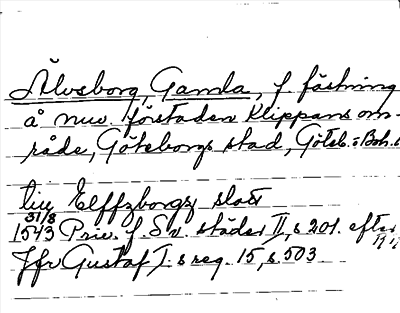 Älvsborg, Gamla, f. fästning
å nuv. förstaden Klippans om-
råde, Göteborgs stad, Göteb. o Boh. l
tiil Elffzborgz slott
31/8
1543 Priv. f. Sv. städer II, s 201. efter
Jfr Gustaf I:s reg. 15, s. 503.